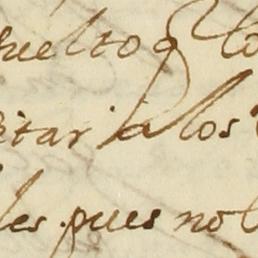 uelto q lo
itar a los
les pues no